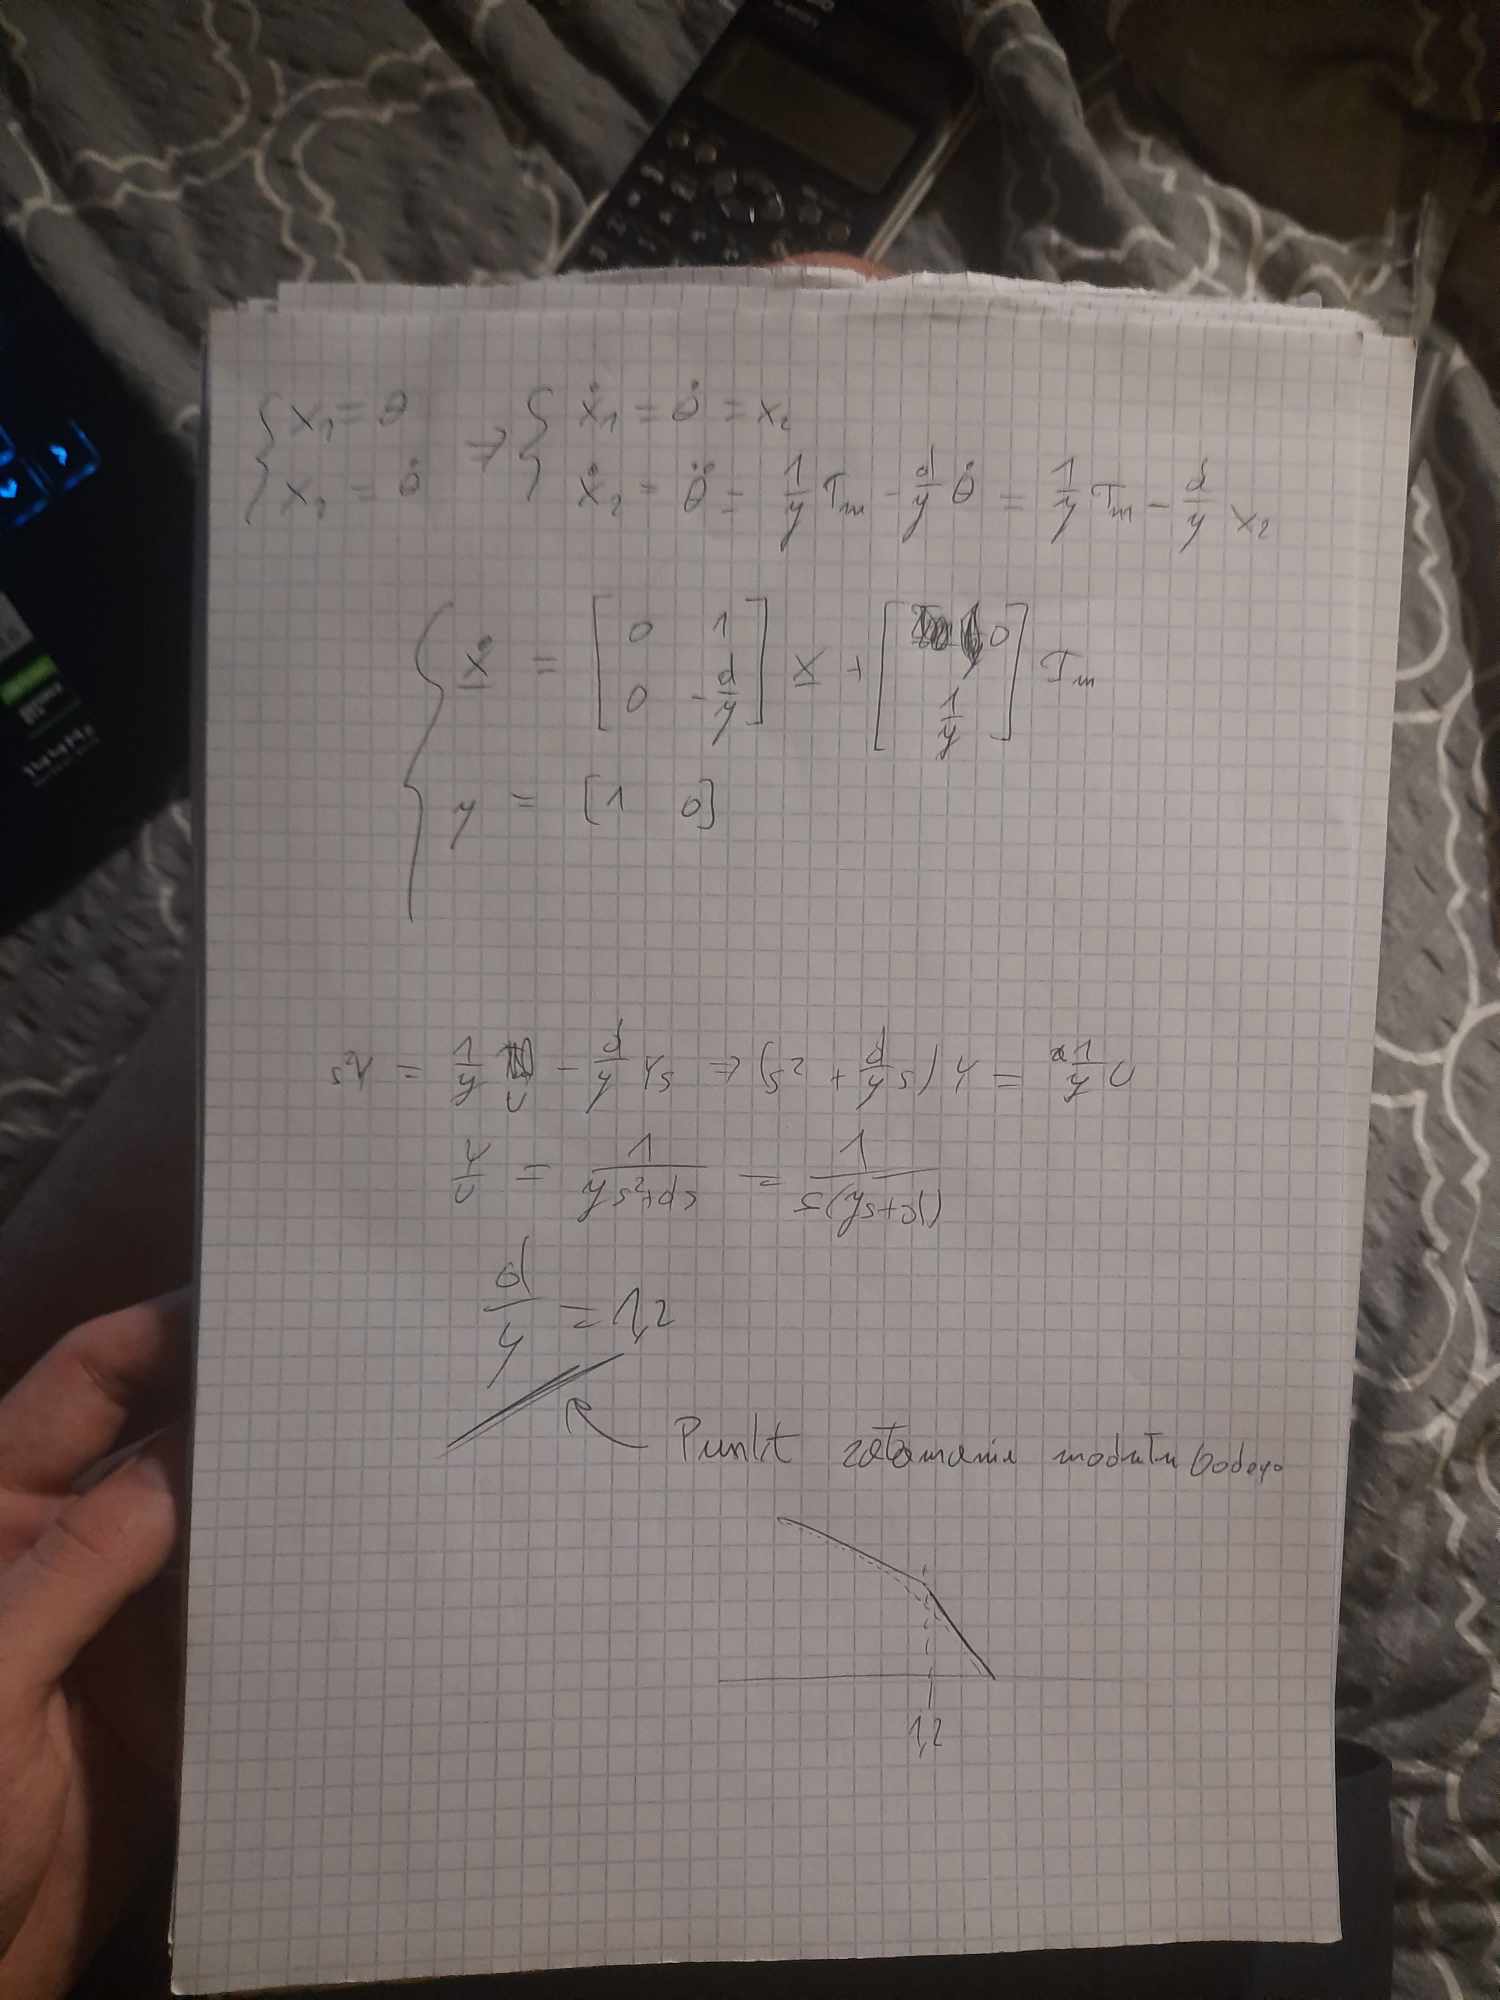 { x₁ = θ ⇒ { ẋ₁ = θ̇ = x₂
{ x₂ = θ̇ { ẋ₂ = θ̈ = 1/y Tm - d/y θ̇ = 1/y Tm - d/y x₂
ẋ = [0 1; 0 -d/y] x + [0; 1/y] Tm
y = [1 0]
s²Y = 1/y U - d/y Ys ⇒ (s² + d/y s) Y = 1/y U
Y/U = 1/(ys²+ds) = 1/(s(ys+d))
d/y = 1,2
Punkt załamania modułu bodego
1,2